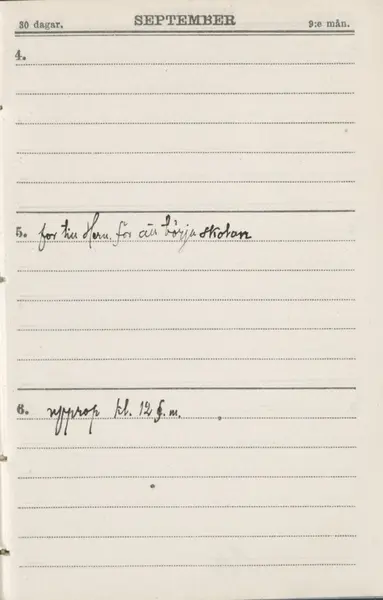 30 dagar. SEPTEMBER 9:e mån.
4.
5. for till Hern. för att börja skolan
6. upprop kl. 12 f. m.